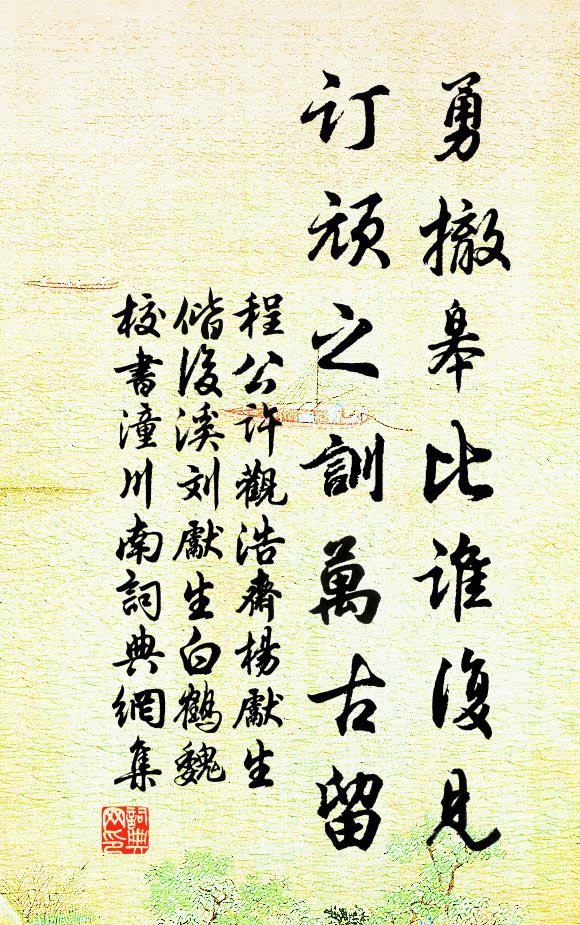 勇撤皋比谁復見
訂頑之訓萬古留
程公许觀浩齋楊獻生
偕後溪刘獻生白鶴魏
校書潼川南詞典網集
詞典
网印